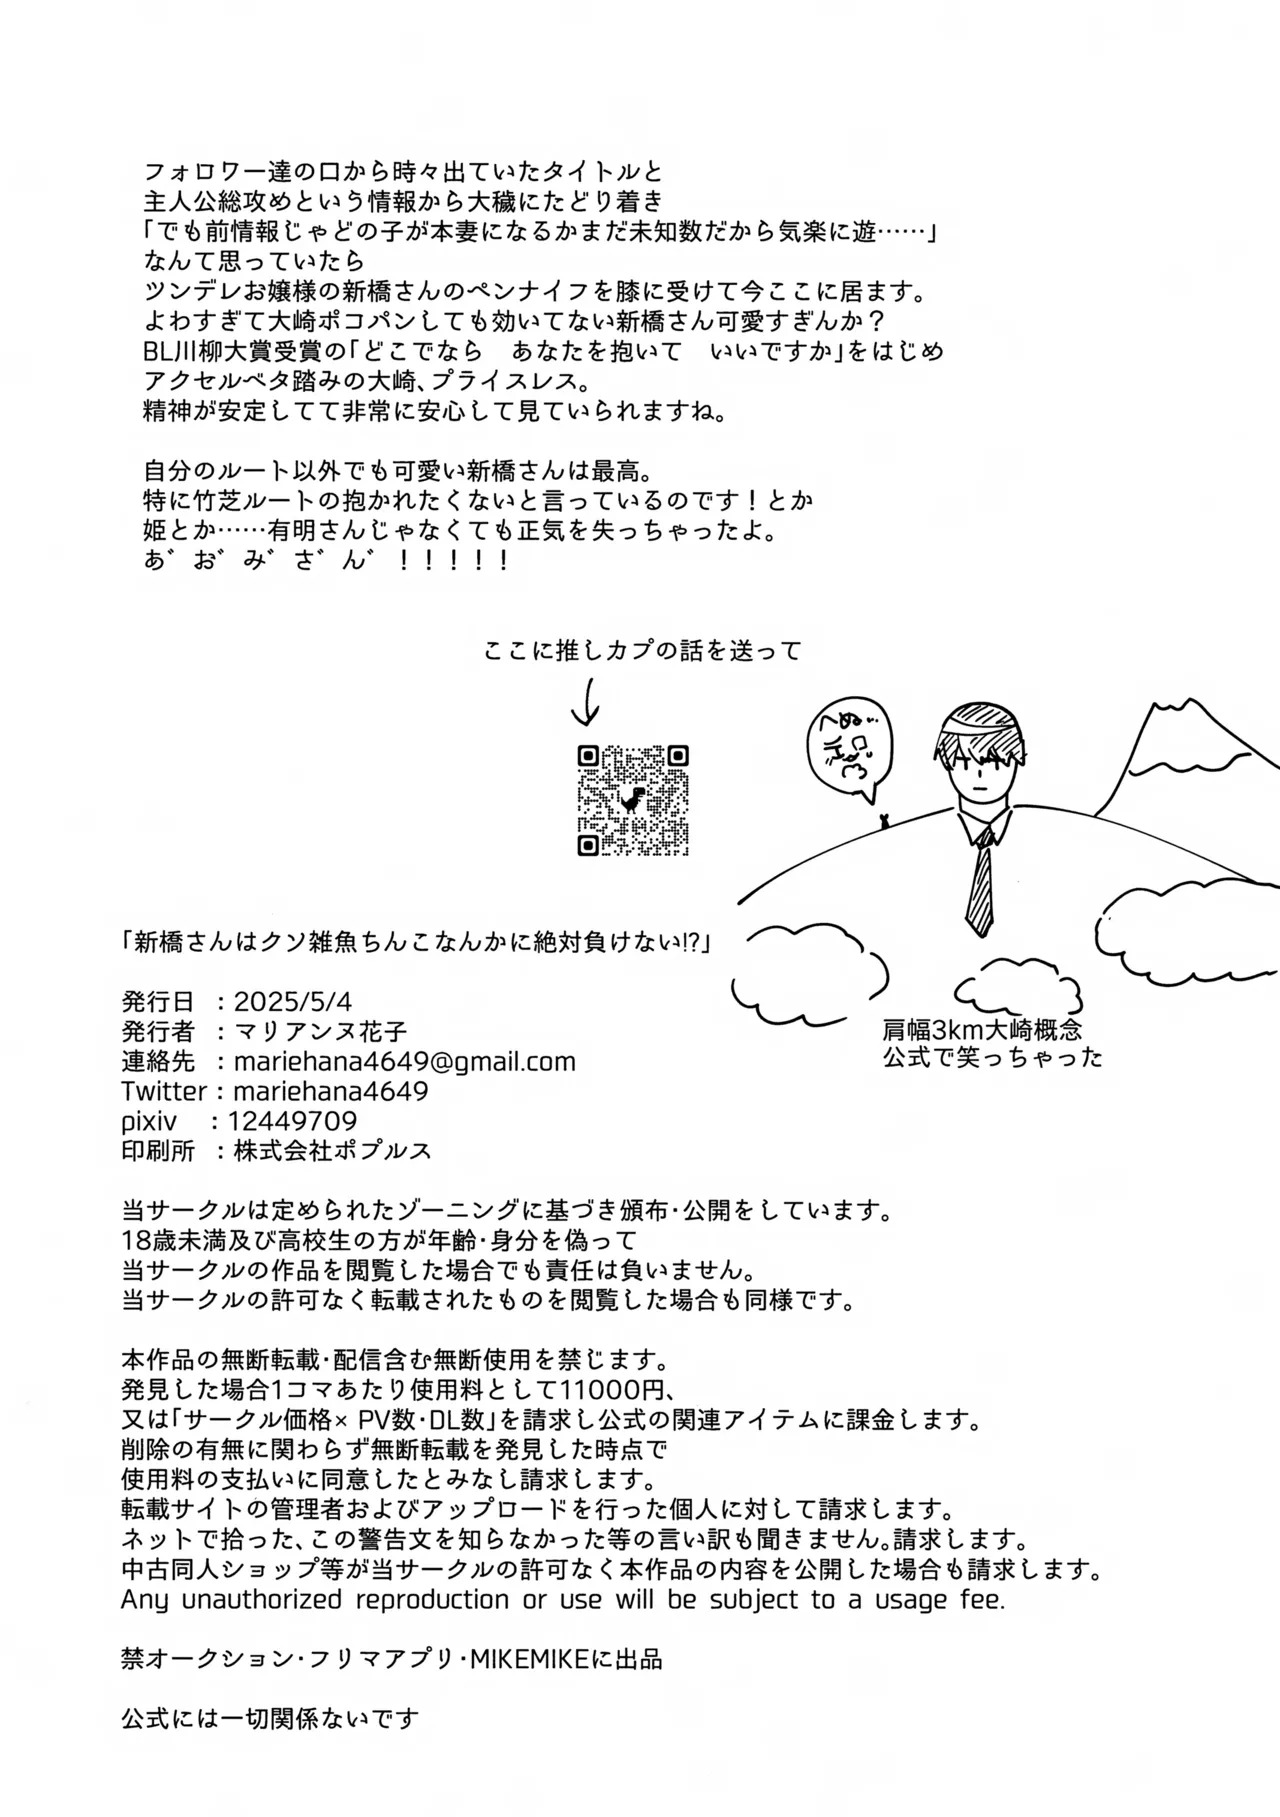 フォロワー達の口から時々出ていたタイトルと
主人公総攻めという情報から大穢にたどり着き
「でも前情報じゃどの子が本妻になるかまだ未知数だから気楽に遊……」
なんて思っていたら
ツンデレお嬢様の新橋さんのペンナイフを膝に受けて今ここに居ます。
よわすぎて大崎ポコパンしても効いてない新橋さん可愛すぎんか？
BL川柳大賞受賞の「どこでなら　あなたを抱いて　いいですか」をはじめ
アクセルベタ踏みの大崎、プライスレス。
精神が安定してて非常に安心して見ていられますね。
自分のルート以外でも可愛い新橋さんは最高。
特に竹芝ルートの抱かれたくないと言っているのです！とか
姫とか……有明さんじゃなくても正気を失っちゃったよ。
あ゛お゛み゛さ゛ん゛！！！！！
ここに推しカプの話を送って
へぬ…
肩幅3km大崎概念
公式で笑っちゃった
「新橋さんはクソ雑魚ちんこなんかに絶対負けない!?」
発行日　：2025/5/4
発行者　：マリアンヌ花子
連絡先　：mariehana4649@gmail.com
Twitter：mariehana4649
pixiv　：12449709
印刷所　：株式会社ポプルス
当サークルは定められたゾーニングに基づき頒布・公開をしています。
18歳未満及び高校生の方が年齢・身分を偽って
当サークルの作品を閲覧した場合でも責任は負いません。
当サークルの許可なく転載されたものを閲覧した場合も同様です。
本作品の無断転載・配信含む無断使用を禁じます。
発見した場合1コマあたり使用料として11000円、
又は「サークル価格× PV数・DL数」を請求し公式の関連アイテムに課金します。
削除の有無に関わらず無断転載を発見した時点で
使用料の支払いに同意したとみなし請求します。
転載サイトの管理者およびアップロードを行った個人に対して請求します。
ネットで拾った、この警告文を知らなかった等の言い訳も聞きません。請求します。
中古同人ショップ等が当サークルの許可なく本作品の内容を公開した場合も請求します。
Any unauthorized reproduction or use will be subject to a usage fee.
禁オークション・フリマアプリ・MIKEMIKEに出品
公式には一切関係ないです